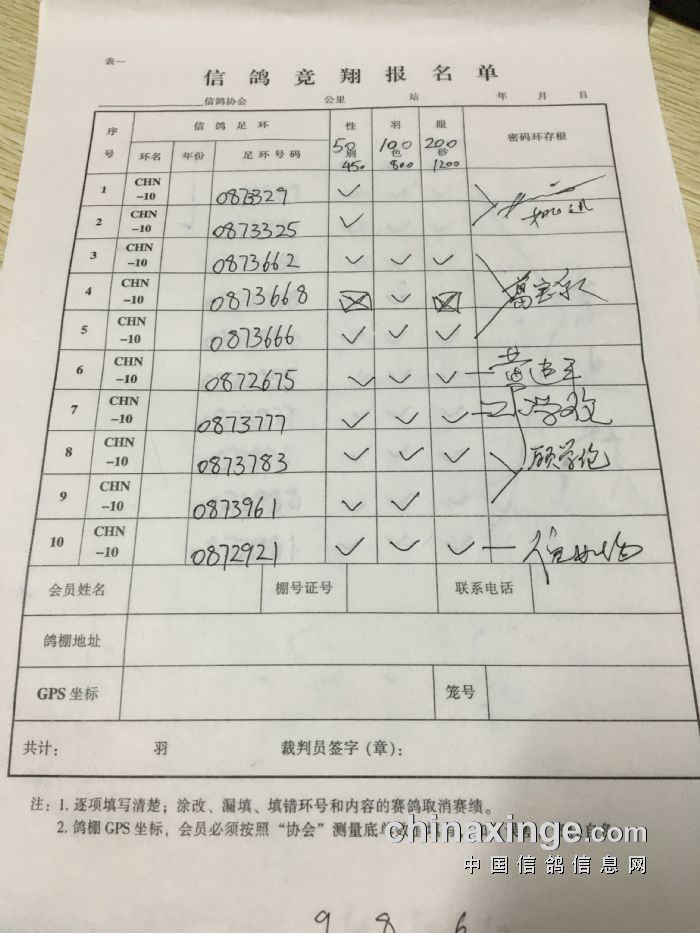 表一
信鸽竞翔报名单
信鸽协会 公里 站 年 月 日
序号 信鸽足环 性别 羽色 眼砂 密码环存根
环名 年份 足环号码 50 450 100 800 200 1200
1 CHN-10 0873329 ✓
2 CHN-10 0873325 ✓
3 CHN-10 0873662 ✓ ✓ ✓
4 CHN-10 0873668 ✓
5 CHN-10 0873666 ✓ ✓ ✓
6 CHN-10 0872675 ✓ ✓ ✓
7 CHN-10 0873777 ✓ ✓ ✓
8 CHN-10 0873783 ✓ ✓ ✓ 顾学伦
9 CHN-10 0873961 ✓ ✓
10 CHN-10 0872921 ✓ ✓ ✓
会员姓名 棚号证号 联系电话
鸽棚地址
GPS 坐标 笼号
共计: 羽 裁判员签字(章):
注: 1. 逐项填写清楚; 涂改、漏填、填错环号和内容的赛鸽取消赛绩。
2. 鸽棚 GPS 坐标, 会员必须按照“协会”测量底单
chinaxinge.com
中国信鸽信息网
9 8 6